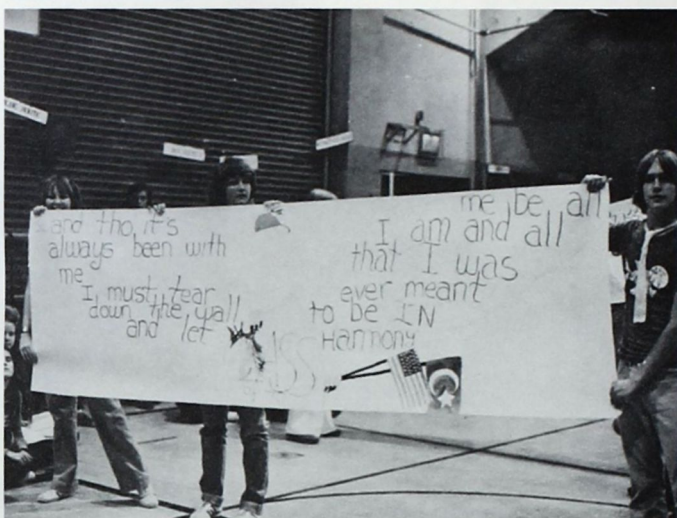 and tho it's
always been with
me
I must tear
down the wall
and let
me be all
I am and all
that I was
ever meant
to be IN
Harmony